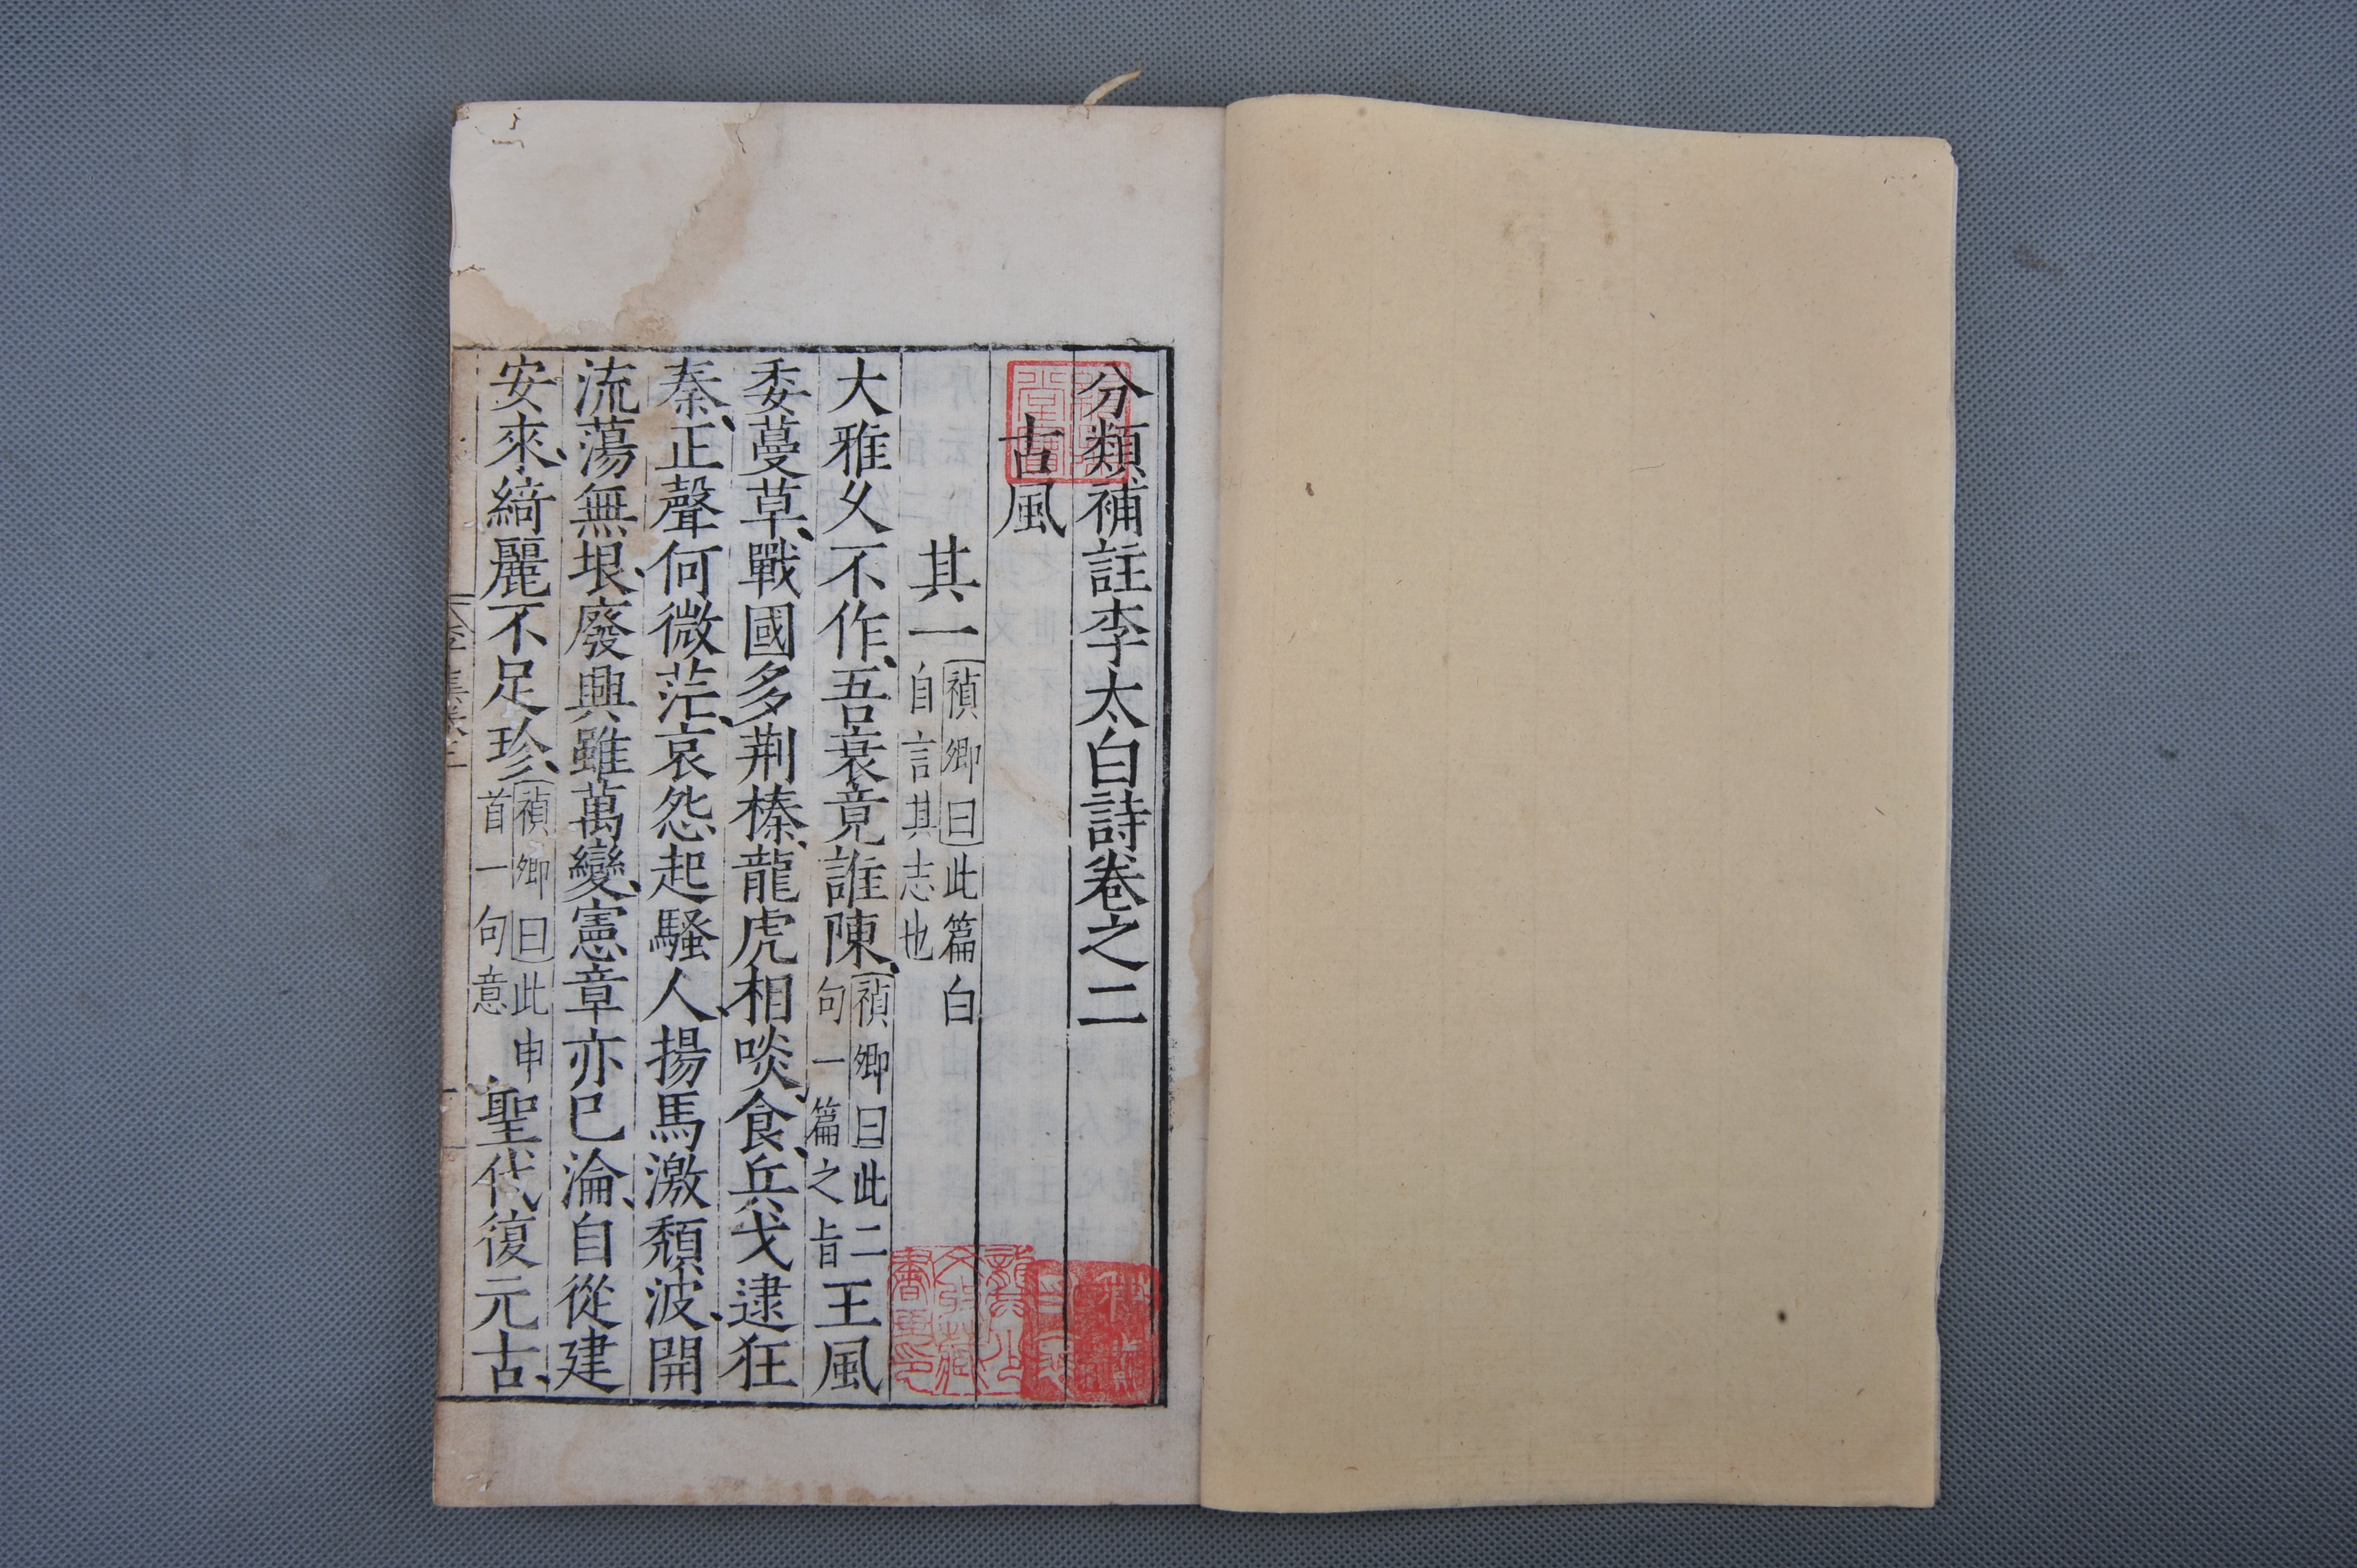 分類補註李太白詩卷之二
古風
其一 禎卿曰此篇白自言其志也
大雅久不作、吾衰竟誰陳、禎卿曰此二句一篇之旨王風
委蔓草、戰國多荆榛、龍虎相啖食、兵戈逮狂
秦、正聲何微茫、哀怨起騷人、揚馬激頹波、開
流蕩無垠、廢興雖萬變、憲章亦已淪、自從建
安來、綺麗不足珍、禎卿曰此申首一句意 聖代復元古、